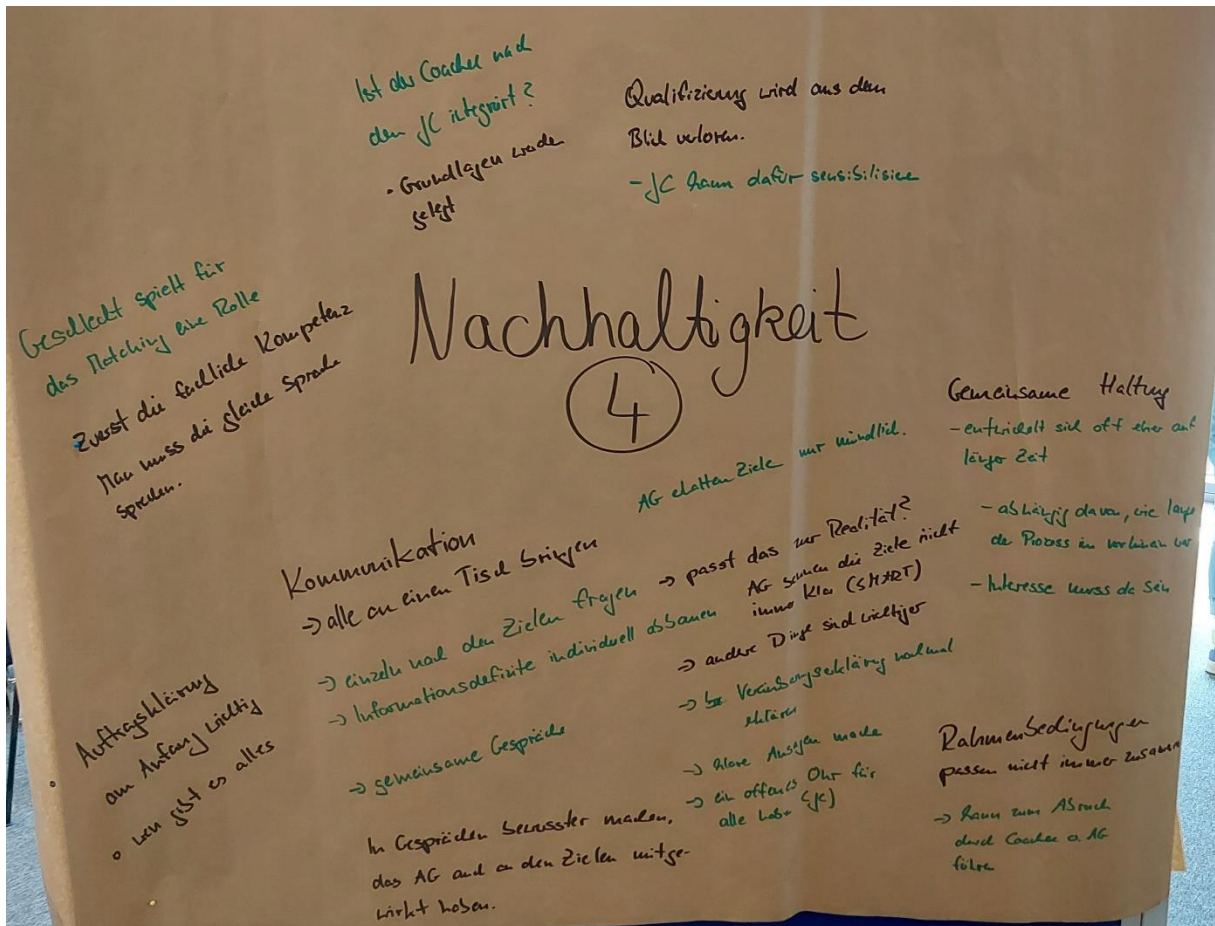 Ist der Coachee nach
dem JC integriert?
- Grundlagen werden
gelegt
Qualifizierung wird aus dem
Blick verloren.
- JC kann dafür sensibilisieren
Geschlecht spielt für
das Matching eine Rolle
Zuerst die fachliche Kompetenz
Man muss die gleiche Sprache
sprechen.
Nachhaltigkeit
4
Gemeinsame Haltung
- entwickelt sich oft eher auf
länger Zeit
- abhängig davon, wie lange
der Prozess im vorhinein war
- Interesse muss da sein
AG erhalten Ziele nur mündlich.
Kommunikation
→ alle an einen Tisch bringen
→ einzeln nach den Zielen fragen
→ Informationsdefizite individuell abbauen
→ gemeinsame Gespräche
→ passt das zur Realität?
AG kennen die Ziele nicht
immer klar (SMART)
→ andere Dinge sind wichtiger
→ Vereinbarungserklärung nochmal
erklären
→ klare Aussagen machen
→ ein offenes Ohr für
alle haben (JC)
In Gesprächen bewusster machen,
das AG auch an den Zielen mitge-
wirkt haben.
Auftragsklärung
am Anfang wichtig
wen gibt es alles
Rahmenbedingungen
passen nicht immer zusammen
→ kann zum Abbruch
durch Coachee o. AG
führen